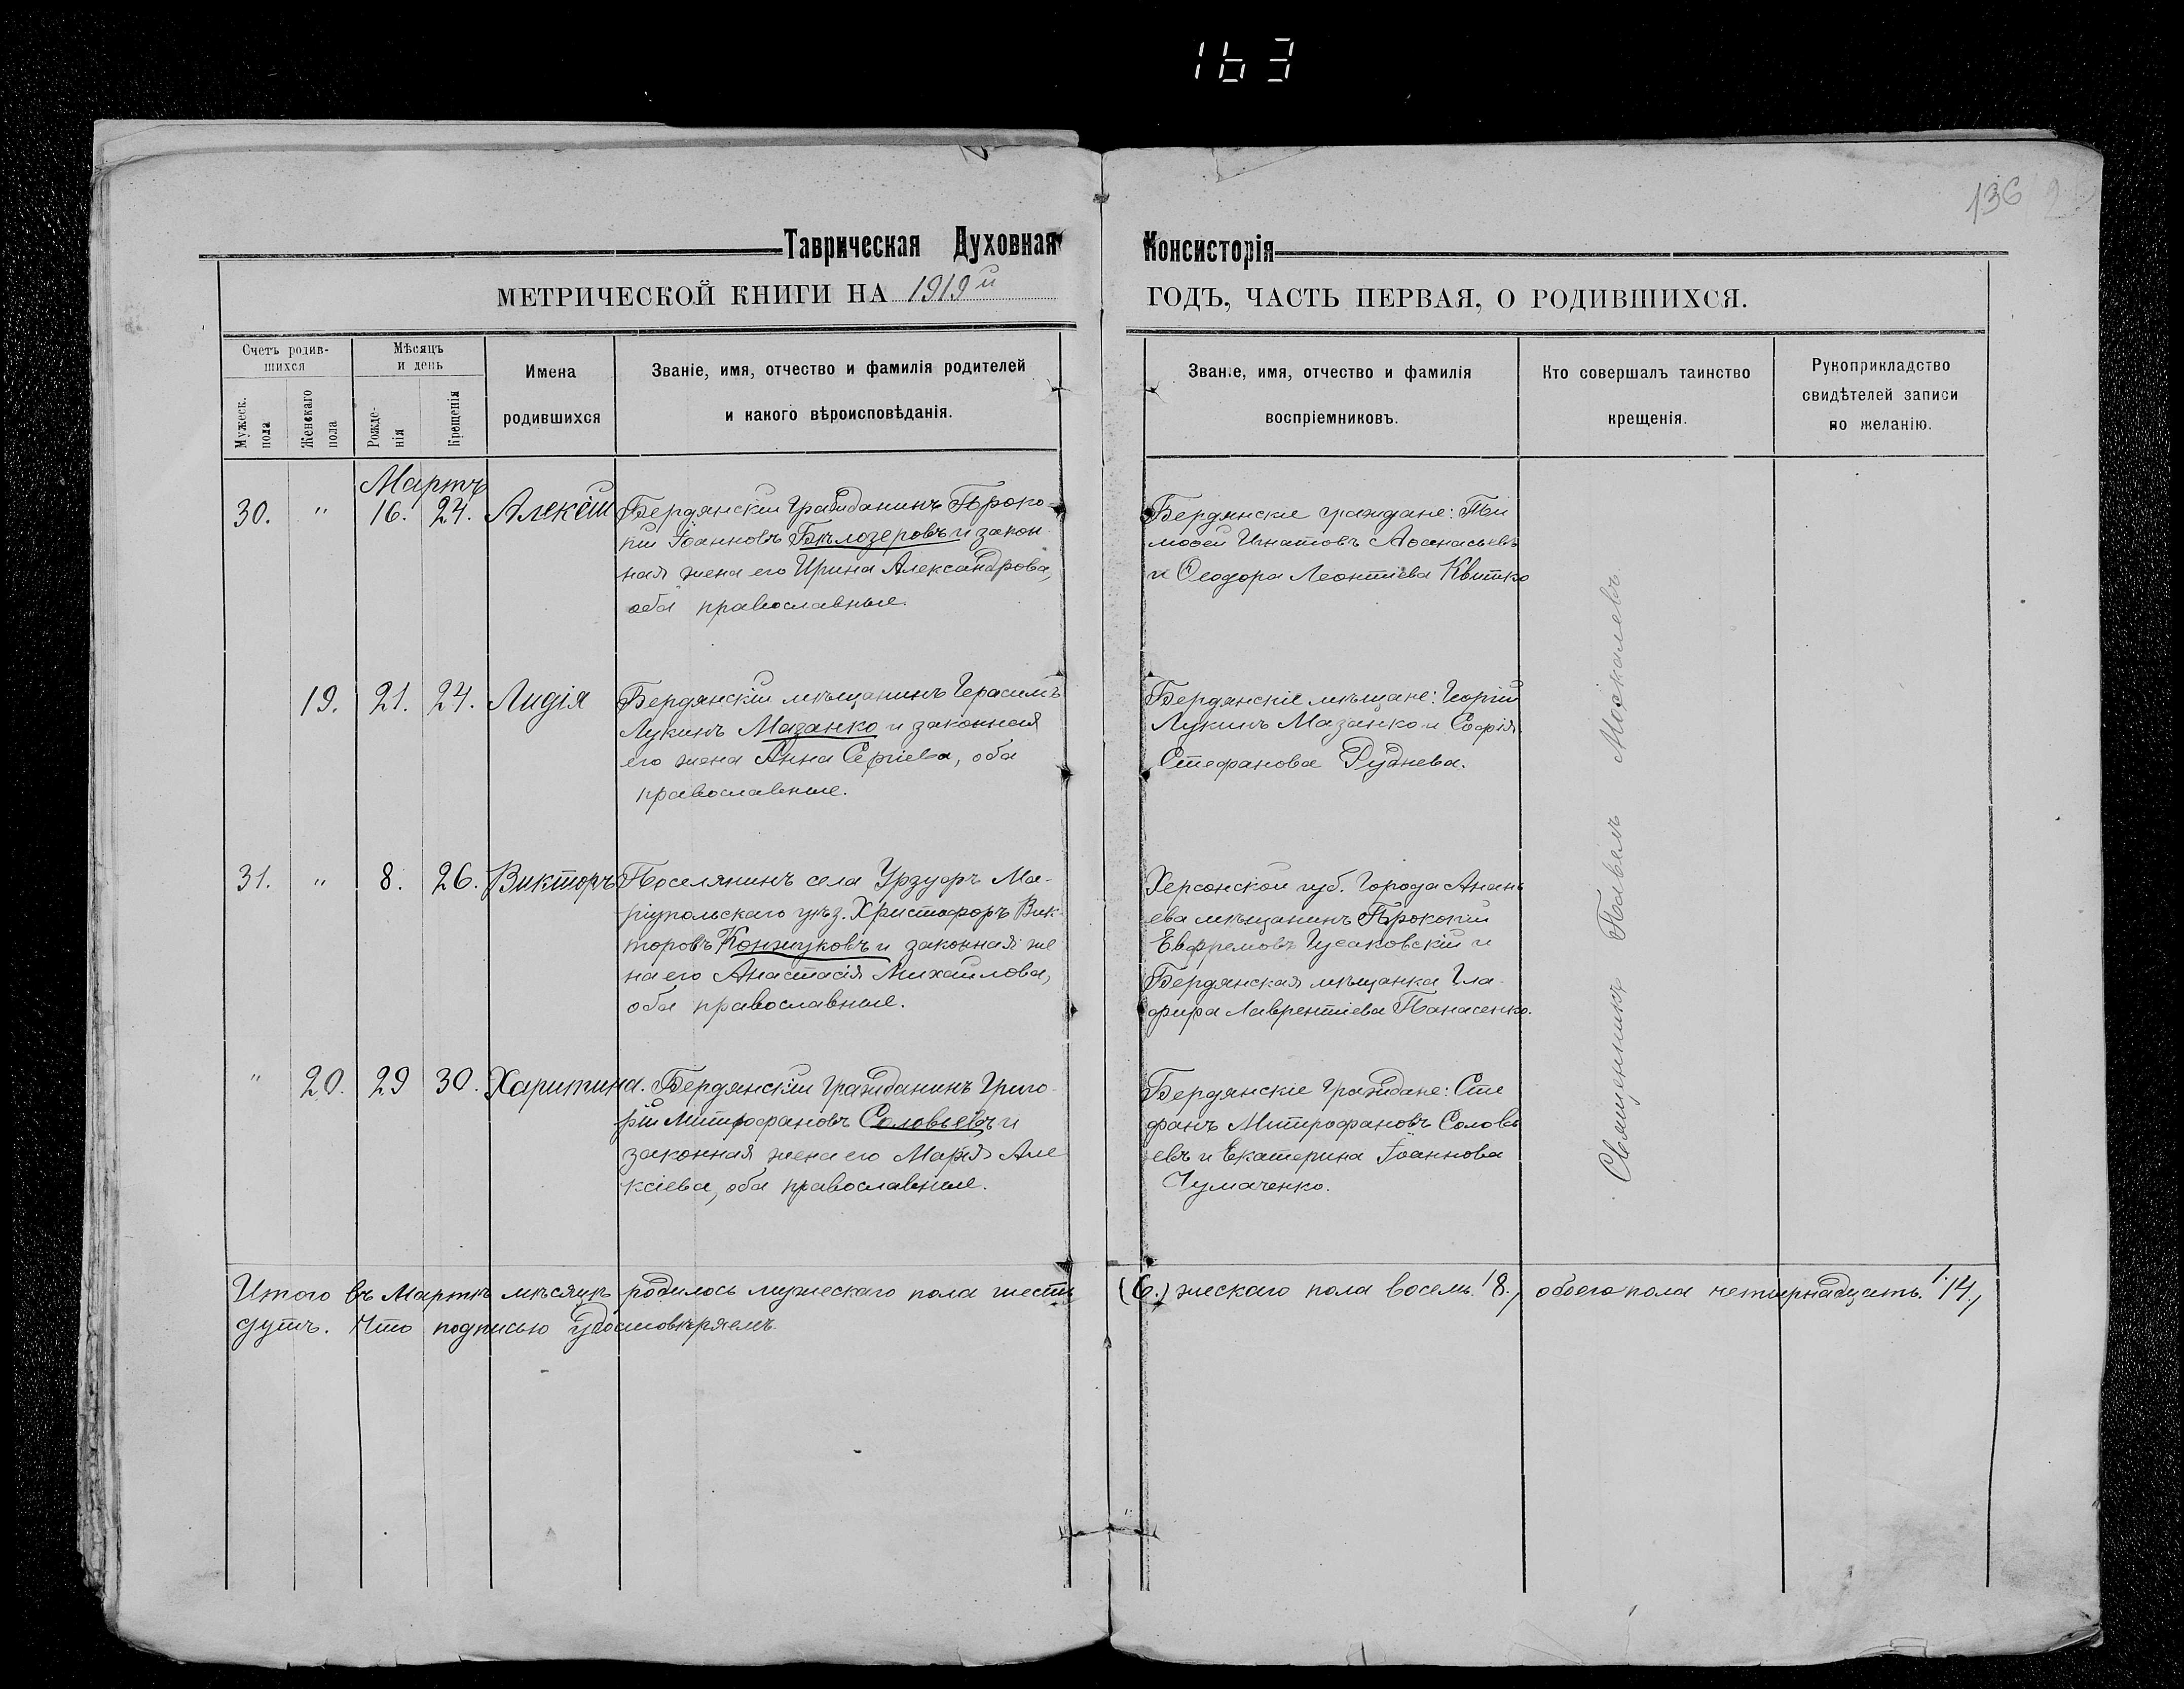 163
136
Таврическая Духовная Консисторія
МЕТРИЧЕСКОЙ КНИГИ НА 1919й ГОДЪ, ЧАСТЬ ПЕРВАЯ, О РОДИВШИХСЯ.
Счетъ родив-
шихся
Мужеск. пола
Женскаго пола
Мѣсяцъ
и день
Рожде-
нія
Крещенія
Имена
родившихся
Званіе, имя, отчество и фамилія родителей
и какого вѣроисповѣданія.
Званіе, имя, отчество и фамилія
воспріемниковъ.
Кто совершалъ таинство
крещенія.
Рукоприкладство
свидѣтелей записи
по желанію.
Мартъ
30. " 16. 24. Алексій
Бердянскій гражданинъ Проко-
пій Іоанновъ Бѣлозеровъ и закон
ная жена его Ирина Александрова,
оба православные.
Бердянскіе граждане: Ти
моѳей Игнатовъ Аѳанасьевъ
и Ѳеодора Леонтіева Квитко
19. 21. 24. Лидія
Бердянскій мѣщанинъ Герасимъ
Лукинъ Мазанко и законная
его жена Анна Сергіева, оба
православные.
Бердянскіе мѣщане: Георгій
Лукинъ Мазанко и Софія
Стефанова Руднева.
31. " 8. 26. Викторъ
Поселянинъ села Урзуфъ Ма-
ріупольскаго уѣз. Христофоръ Вик
торовъ Конжуковъ и законная же
на его Анастасія Михайлова,
оба православные.
Херсонской губ. города Анань
ева мѣщанинъ Прокопій
Евфремовъ Гусаковскій и
Бердянская мѣщанка Гла-
фира Лаврентіева Панасенко.
" 20. 29 30. Харитина.
Бердянскій гражданинъ Григо-
рій Митрофановъ Соловьевъ и
законная жена его Марія Але
ксіева, оба православные.
Бердянскіе граждане: Сте
фанъ Митрофановъ Соловь
евъ и Екатерина Іоаннова
Чумаченко.
Священникъ Павелъ Москалевъ
Итого въ Мартѣ мѣсяцѣ родилось мужескаго пола шесть (6.) женскаго пола восемь /8./ обоего пола четырнадцать. /14./
душъ. Что подписью удостовѣряемъ.